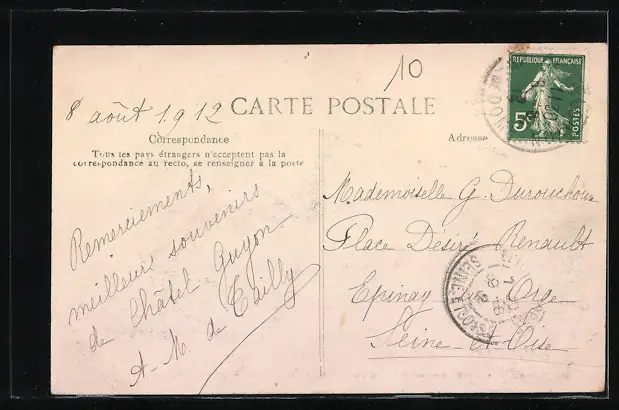 10
8 août 1912
CARTE POSTALE
RÉPUBLIQUE FRANÇAISE
5c
POSTES
Correspondance
Adresse
Tous les pays étrangers n'acceptent pas la
correspondance au recto, se renseigner à la poste
Remerciements,
meilleurs souvenirs
de Châtel Guyon
A-M. de Tailly
Mademoiselle G. Durouchoux
Place Désiré Renault
Epinay sur Orge
Seine et Oise
SEINE-ET-OISE